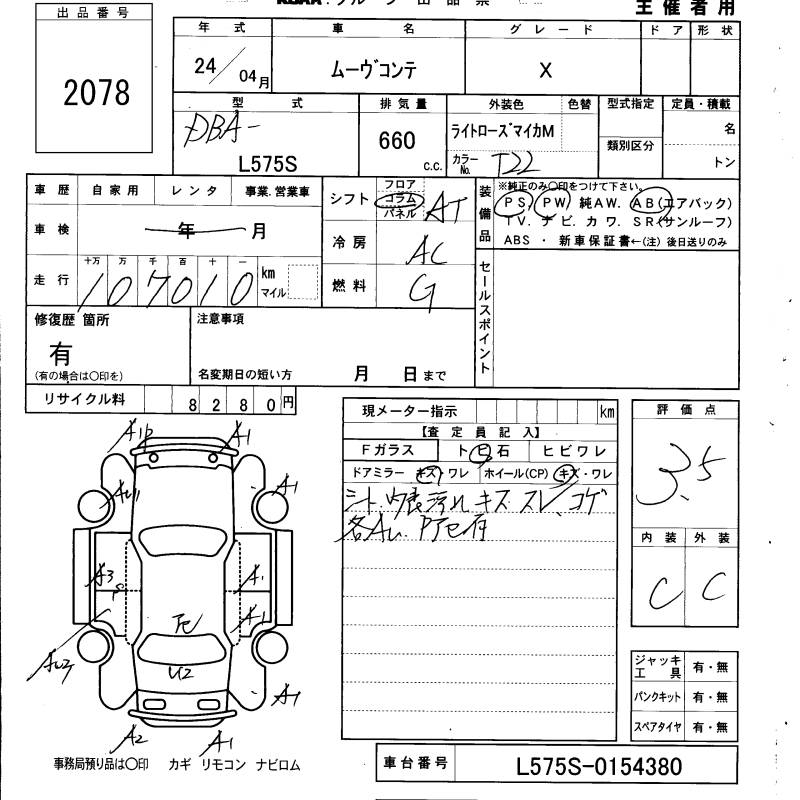 主催者用
出品番号
2078
年式 車名 グレード ドア 形状
24/04月 ムーヴコンテ X
型式 排気量 外装色 色替 型式指定 定員・積載
DBA-
L575S
660 c.c.
ライトローズマイカM
カラーNo. T22
類別区分
名
トン
車歴 自家用 レンタ 事業.営業車
車検 年 月
走行 十万 万 千 百 十 一
107010 km マイル
シフト フロア コラム パネル AT
冷房 AC
燃料 G
装備品 ※純正のみ〇印をつけて下さい。
PS. PW. 純AW. AB(エアバック)
TV. ナビ. カワ. SR(サンルーフ)
ABS ・ 新車保証書←(注) 後日送りのみ
セールスポイント
修復歴 箇所
有
(有の場合は〇印を)
注意事項
名変期日の短い方 月 日まで
リサイクル料 8280円
現メーター指示 km
【査定員記入】
Fガラス トビ石 ヒビワレ
ドアミラー キズ・ワレ ホイール(CP) キズ・ワレ
シート.内張汚れ キズ スレ、コゲ
各AU.
評価点
3.5
内装 外装
C C
A1
A1
A3
A1
A1
U2
A1
A2 A1
ジャッキ工具 有・無
パンクキット 有・無
スペアタイヤ 有・無
事務局預り品は〇印 カギ リモコン ナビロム
車台番号 L575S-0154380